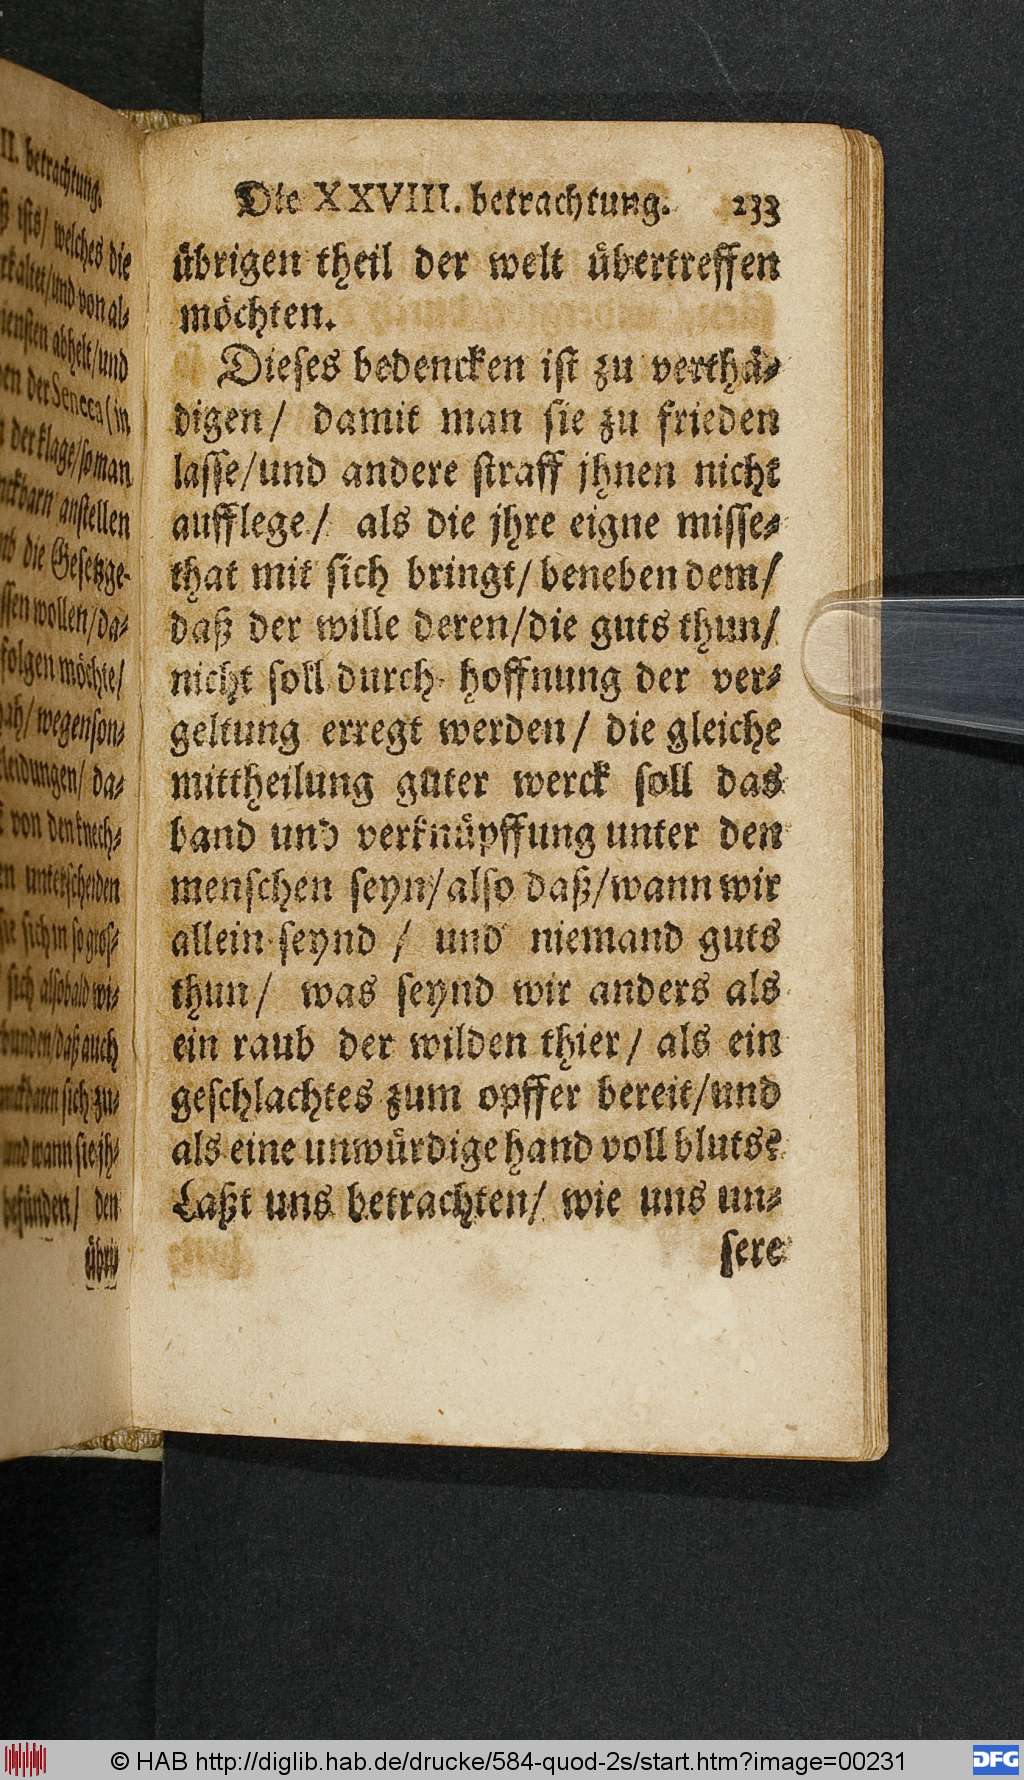 II. betrachtung.
ß ists/ welches die
erkaltet/und von al-
iensten abhelt/und
en der Seneca (in
der klage/so man
nckbarn anstellen
und die Gesetzge-
ssen wollen/da-
folgen möchte/
wegen son-
leidungen/ da-
von den knech-
en unterscheiden
sie sich in so gros-
sich alsobald wi-
bunden/daß auch
sich zu-
und wann sie jh-
befünden/ den
übri-
Die XXVIII. betrachtung. 233
übrigen theil der welt übertreffen
möchten.
Dieses bedencken ist zu verthä-
digen/ damit man sie zu frieden
lasse/und andere straff jhnen nicht
aufflege/ als die jhre eigne misse-
that mit sich bringt/ beneben dem/
daß der wille deren/die guts thun/
nicht soll durch hoffnung der ver-
geltung erregt werden/ die gleiche
mittheilung guter werck soll das
band und verknüpffung unter den
menschen seyn/also daß/wann wir
allein seynd / und niemand guts
thun/ was seynd wir anders als
ein raub der wilden thier/ als ein
geschlachtes zum opffer bereit/und
als eine unwürdige hand voll bluts?
Laßt uns betrachten/ wie uns un-
sere
© HAB http://diglib.hab.de/drucke/584-quod-2s/start.htm?image=00231
DFG